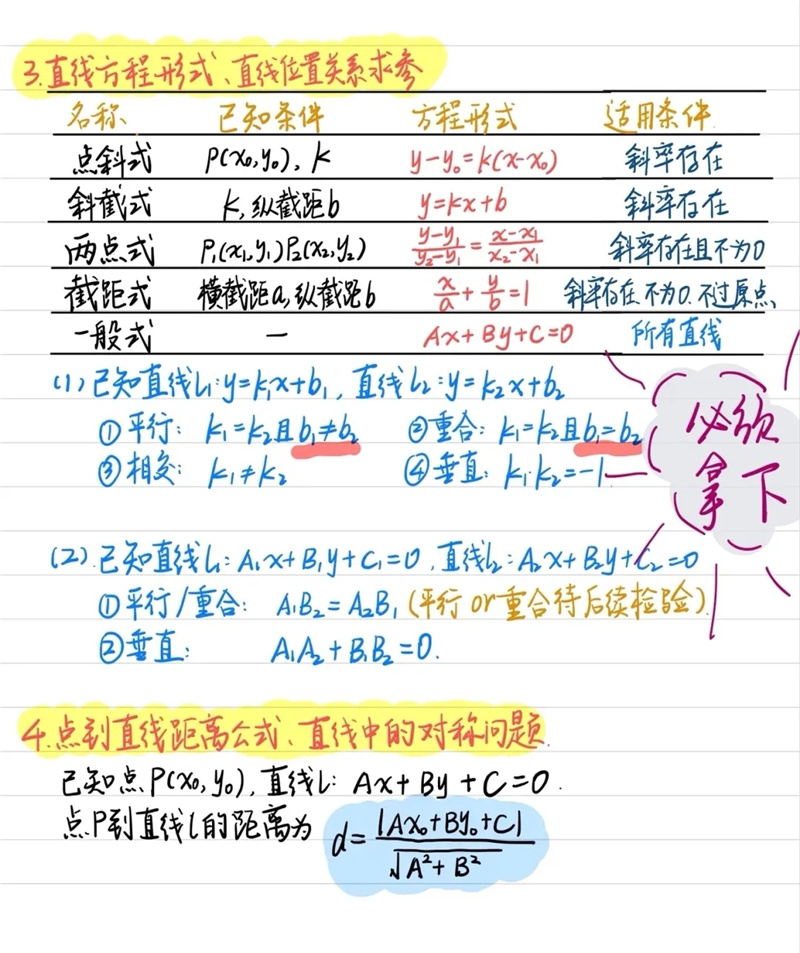 3.直线方程形式、直线位置关系求参
名称 已知条件 方程形式 适用条件
点斜式 P(x₀,y₀), k y-y₀=k(x-x₀) 斜率存在
斜截式 k,纵截距b y=kx+b 斜率存在
两点式 P₁(x₁,y₁)P₂(x₂,y₂) (y-y₁)/(y₂-y₁)=(x-x₁)/(x₂-x₁) 斜率存在且不为0
截距式 横截距a,纵截距b x/a+y/b=1 斜率存在.不为0.不过原点
一般式 — Ax+By+C=0 所有直线
(1)已知直线l₁:y=k₁x+b₁, 直线l₂:y=k₂x+b₂
①平行: k₁=k₂且b₁≠b₂ ②重合: k₁=k₂且b₁=b₂
③相交: k₁≠k₂ ④垂直: k₁·k₂=-1
必须
拿下
(2).已知直线l₁: A₁x+B₁y+C₁=0, 直线l₂: A₂x+B₂y+C₂=0
①平行/重合: A₁B₂=A₂B₁ (平行or重合待后续检验)
②垂直: A₁A₂+B₁B₂=0.
4.点到直线距离公式、直线中的对称问题.
已知点P(x₀,y₀),直线l: Ax+By+C=0.
点P到直线l的距离为 d=|Ax₀+By₀+C|/√(A²+B²)